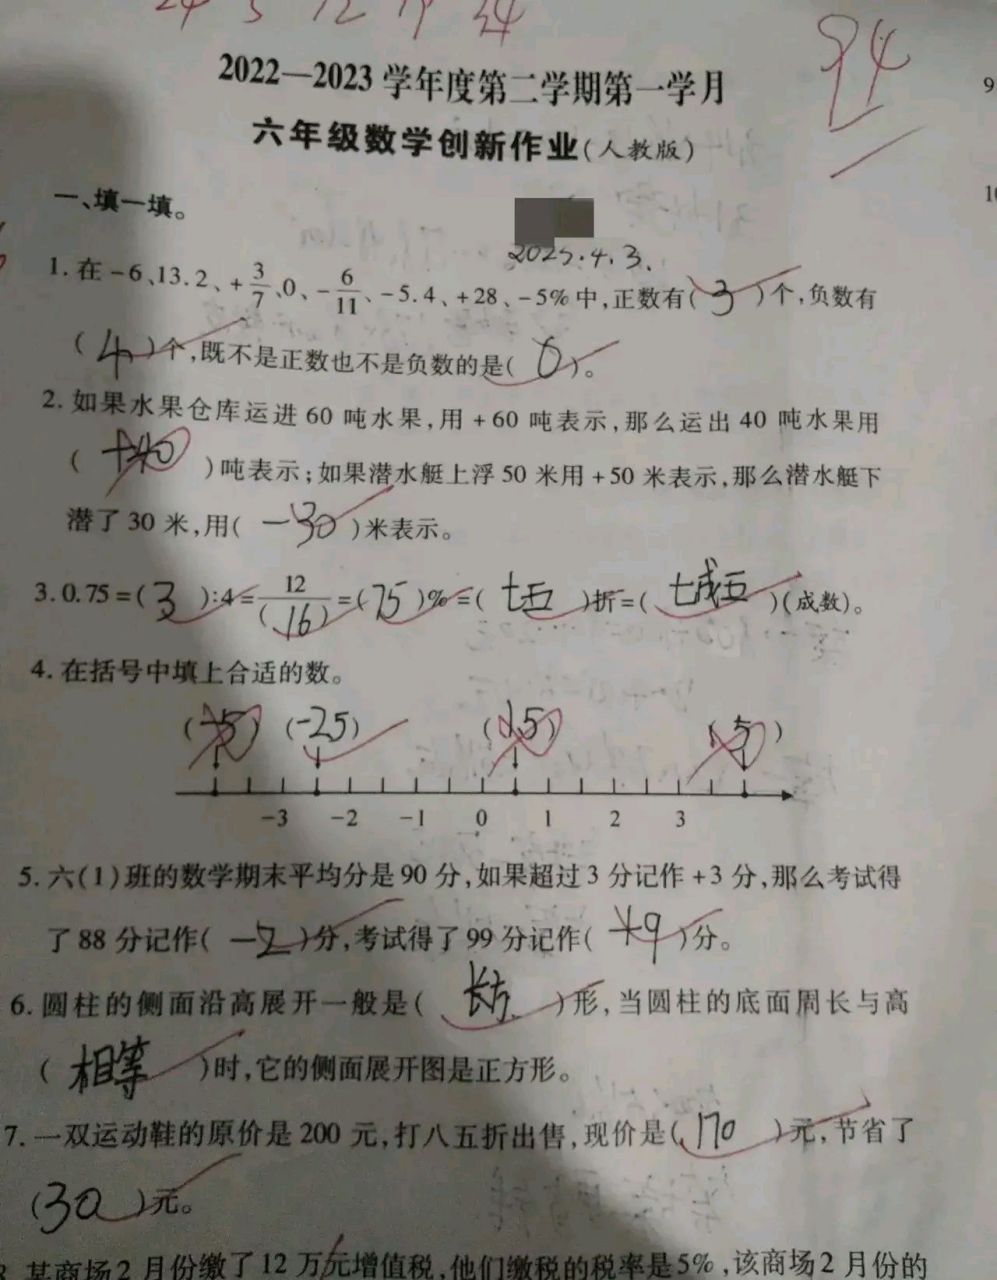 24 5 12 19 24
94
2022—2023学年度第二学期第一学月
六年级数学创新作业(人教版)
一、填一填。
2025.4.3.
1. 在-6、13.2、+3/7、0、-6/11、-5.4、+28、-5%中,正数有(3)个,负数有
(4)个,既不是正数也不是负数的是(0)。
2. 如果水果仓库运进60吨水果,用+60吨表示,那么运出40吨水果用
(+40)吨表示;如果潜水艇上浮50米用+50米表示,那么潜水艇下
潜了30米,用(-30)米表示。
3. 0.75=(3):4=12/(16)=(75)%=(七五)折=(七成五)(成数)。
4. 在括号中填上合适的数。
(-5) (-25) (15) (5)
-3 -2 -1 0 1 2 3
5. 六(1)班的数学期末平均分是90分,如果超过3分记作+3分,那么考试得
了88分记作(-2)分,考试得了99分记作(+9)分。
6. 圆柱的侧面沿高展开一般是(长方)形,当圆柱的底面周长与高
(相等)时,它的侧面展开图是正方形。
7. 一双运动鞋的原价是200元,打八五折出售,现价是(170)元,节省了
(30)元。
某商场2月份缴了12万元增值税,他们缴税的税率是5%,该商场2月份的
9
10